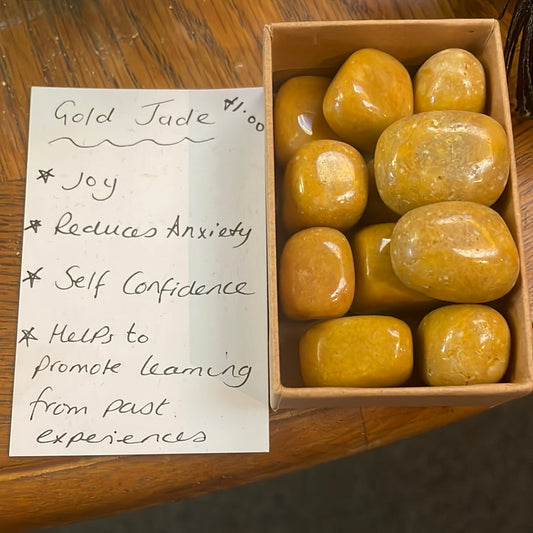 Gold Jade
* Joy
* Reduces Anxiety
* Self Confidence
* Helps to
Promote learning
from past.
experiences